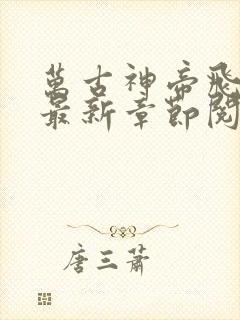 萬古神帝飛
最新章節閱
唐三蕭